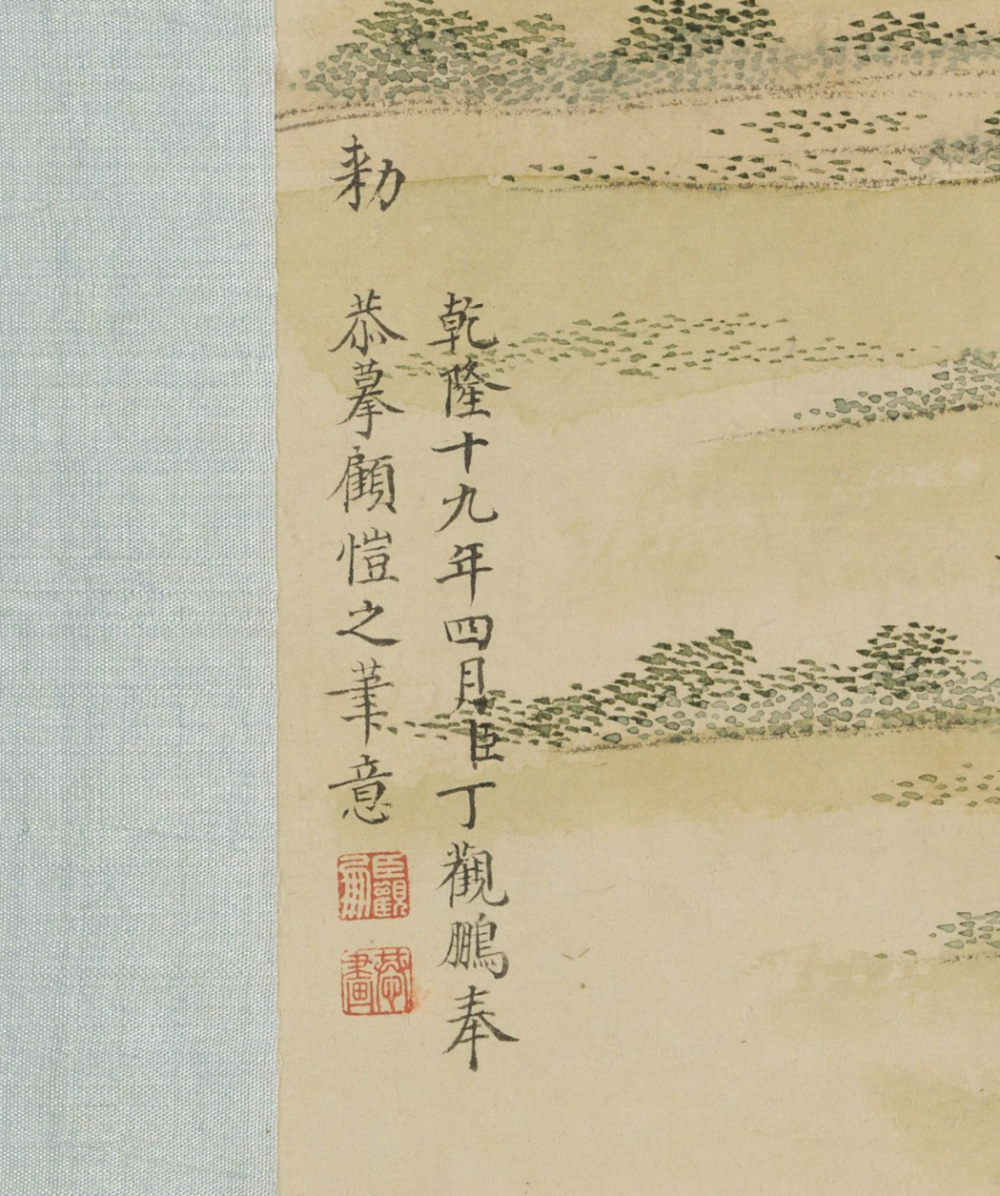 乾隆十九年四月臣丁觀鵬奉
勑恭摹顧愷之筆意
臣觀鵬
恭畫